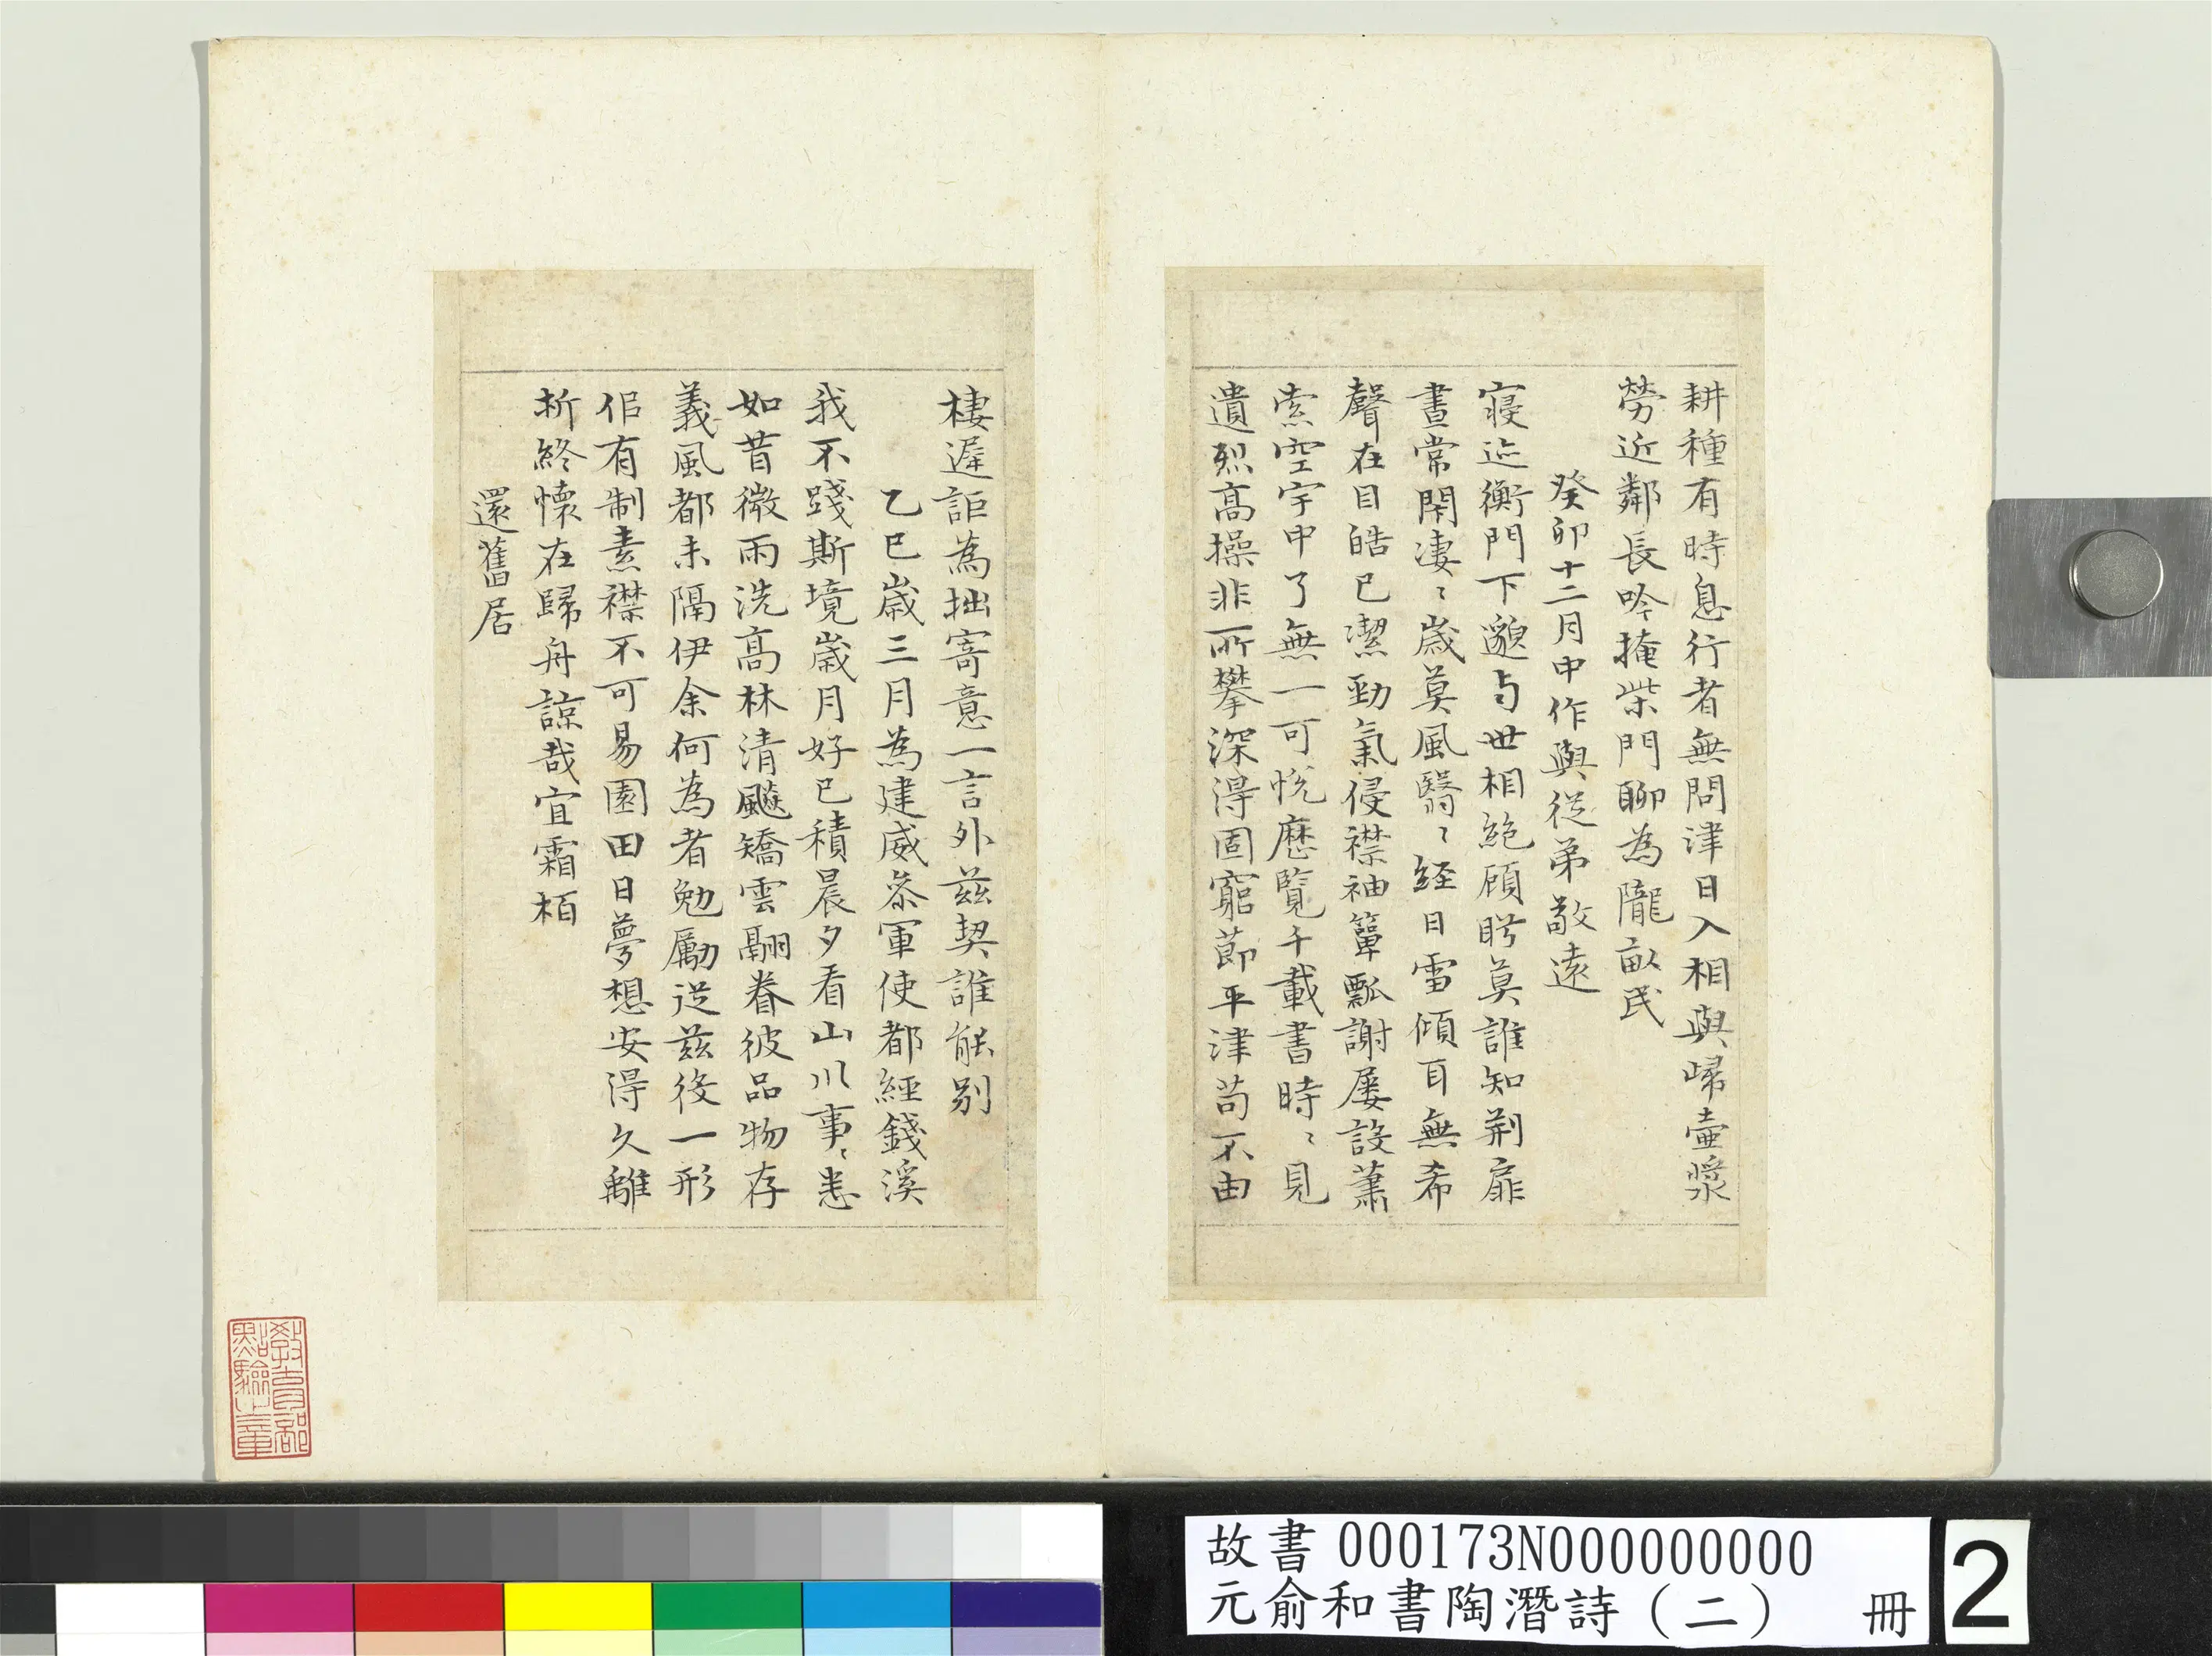 耕種有時息行者無問津日入相與歸壺漿
勞近鄰長吟掩柴門聊為隴畝民
癸卯十二月中作與從弟敬遠
寢迹衡門下邈与世相絶顧眄莫誰知荆扉
晝常閑淒〻歲莫風翳〻經日雪傾耳無希
聲在目皓已潔勁氣侵襟袖簞瓢謝屢設蕭
索空宇中了無一可悅歷覽千載書時〻見
遺烈高操非所攀深得固窮節平津苟不由
棲遲詎為拙寄意一言外茲契誰能别
乙巳歲三月為建威叅軍使都經錢溪
我不踐斯境歲月好已積晨夕看山川事〻悉
如昔微雨洗高林清飈矯雲翮眷彼品物存
義風都未隔伊余何為者勉勵從茲役一形
佀有制素襟不可易園田日夢想安得久離
析終懷在歸舟諒哉宜霜栢
還舊居
教育部
點驗之章
故書 000173N000000000
元俞和書陶潛詩（二） 冊
2